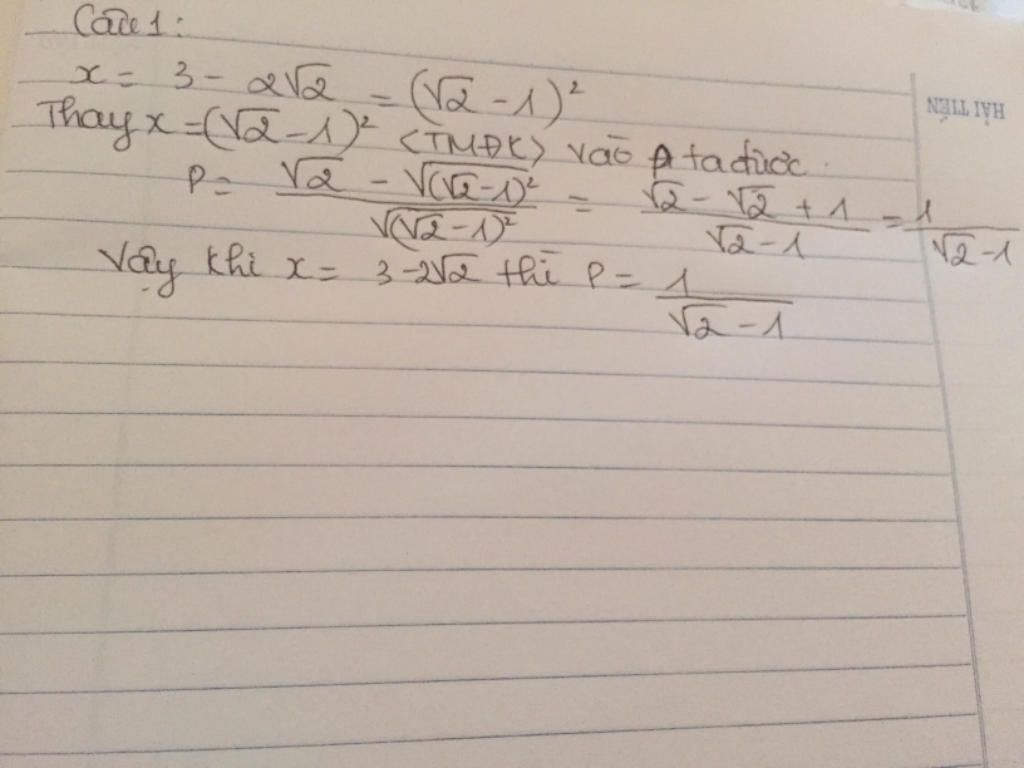 Câu 1:
x = 3 - 2√2 = (√2 - 1)²
Thay x = (√2 - 1)² <TMĐK> vào P ta được.
P = (√2 - √((√2 - 1)²))/(√((√2 - 1)²)) = (√2 - √2 + 1)/(√2 - 1) = 1/(√2 - 1)
Vậy khi x = 3 - 2√2 thì P = 1/(√2 - 1)
HẢI TIẾN